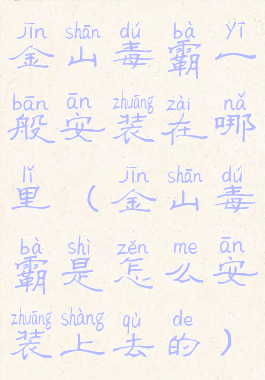 jīn shān dú bà yī
金山毒霸一
bān ān zhuāng zài nǎ
般安装在哪
lǐ jīn shān dú
里（金山毒
bà shì zěn me ān
霸是怎么安
zhuāng shàng qù de
装上去的）